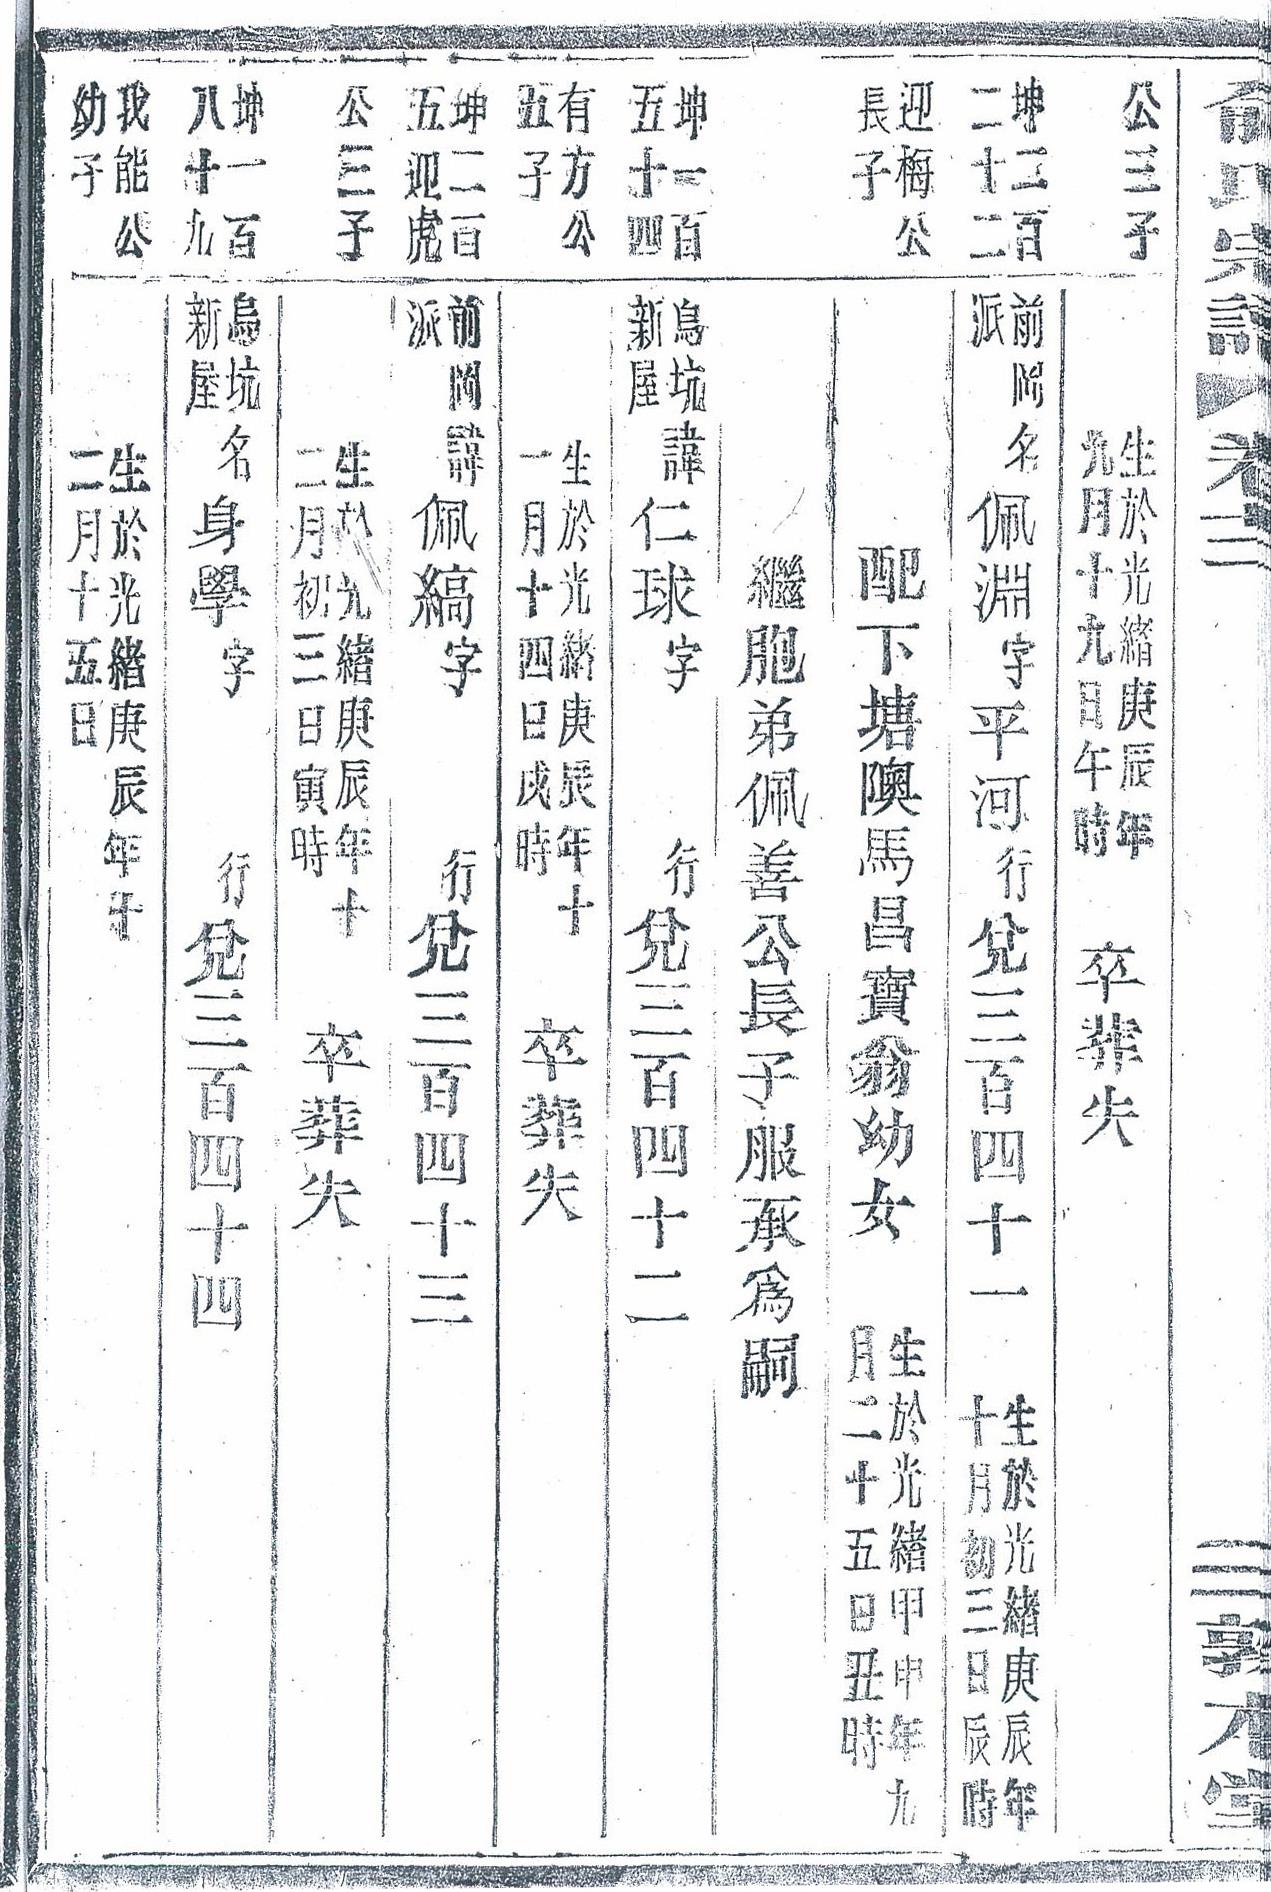 俞氏宗譜 卷三 三 敦本堂
公三子
生於光緒庚辰年
九月十九日午時
卒葬失
坤二百
二十二
前岡
派
名佩淵字平河行兌三百四十一
生於光緒庚辰年
十月初三日辰時
迎梅公
長子
配下塘隩馬昌寶翁幼女
生於光緒甲申年九
月二十五日丑時
繼胞弟佩善公長子服承為嗣
坤一百
五十四
烏坑
新屋
諱仁球字 行兌三百四十二
有方公
五子
生於光緒庚辰年十
一月十四日戌時
卒葬失
坤二百
五迎虎
前岡
派
諱佩縞字 行兌三百四十三
公三子
生於光緒庚辰年十
二月初三日寅時
卒葬失
坤一百
八十九
烏坑
新屋
名身學字 行兌三百四十四
我能公
幼子
生於光緒庚辰年十
二月十五日